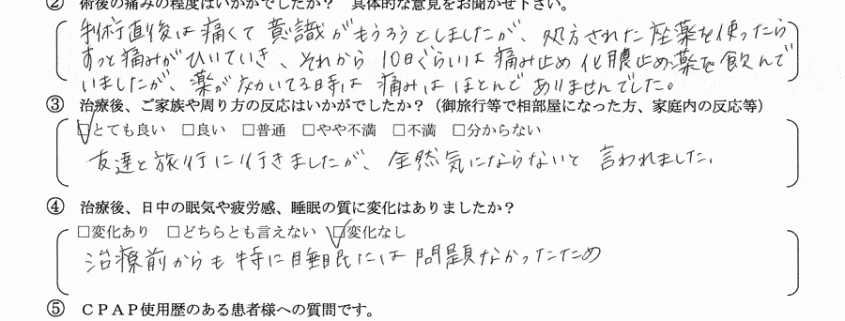 ② 術後の痛みの程度はいかがでしたか？ 具体的な意見をお聞かせ下さい。
手術直後は痛くて意識がもうろうとしましたが、処方された座薬を使ったら
すっと痛みがひいていき、それから10日ぐらいは痛み止め化膿止め薬を飲んで
いましたが、薬が効いてる時は痛みはほとんどありませんでした。
③ 治療後、ご家族や周り方の反応はいかがでしたか？（御旅行等で相部屋になった方、家庭内の反応等）
☑とても良い □良い □普通 □やや不満 □不満 □分からない
友達と旅行に行きましたが、全然気にならないと言われました。
④ 治療後、日中の眠気や疲労感、睡眠の質に変化はありましたか？
□変化あり □どちらとも言えない ☑変化なし
治療前からも特に睡眠には問題なかったため
⑤ ＣＰＡＰ使用歴のある患者様への質問です。